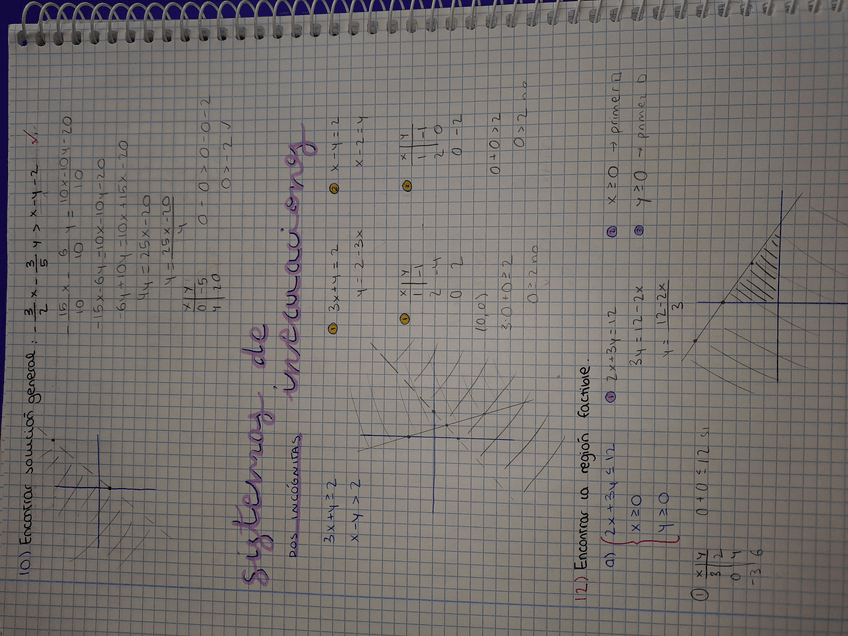 10) Encontrar solución general: -3/2 x - 3/5 y > x - y - 2 ✓
-15x/10 - 6/10 y = 10x-10y-20/10
-15x-6y=10x-10y-20
-6y+10y=10x+15x-20
4y=25x-20
y=25x-20/4
x | y
0 | -5
4 | 20
0-0>0-0-2
0>-2 ✓
sistemas de
inecuaciones
DOS INCÓGNITAS
3x+y≥2
x-y>2
① 3x+y=2
y=2-3x
② x-y=2
x-2=y
① x | y
1 | -1
2 | -4
0 2
(0,0)
3·0+0≥2
0≥2 no
② x | y
1 | -1
2 | 0
0 -2
0+0>2
0>2 no
12) Encontrar la región factible.
a) { 2x+3y≤12
x≥0
y≥0
① 2x+3y=12
3y=12-2x
y=12-2x/3
② x≥0 → primero
③ y≥0 → primero
① x | y
3 | 2
0 | 4
-3 | 6
0+0≤12 si